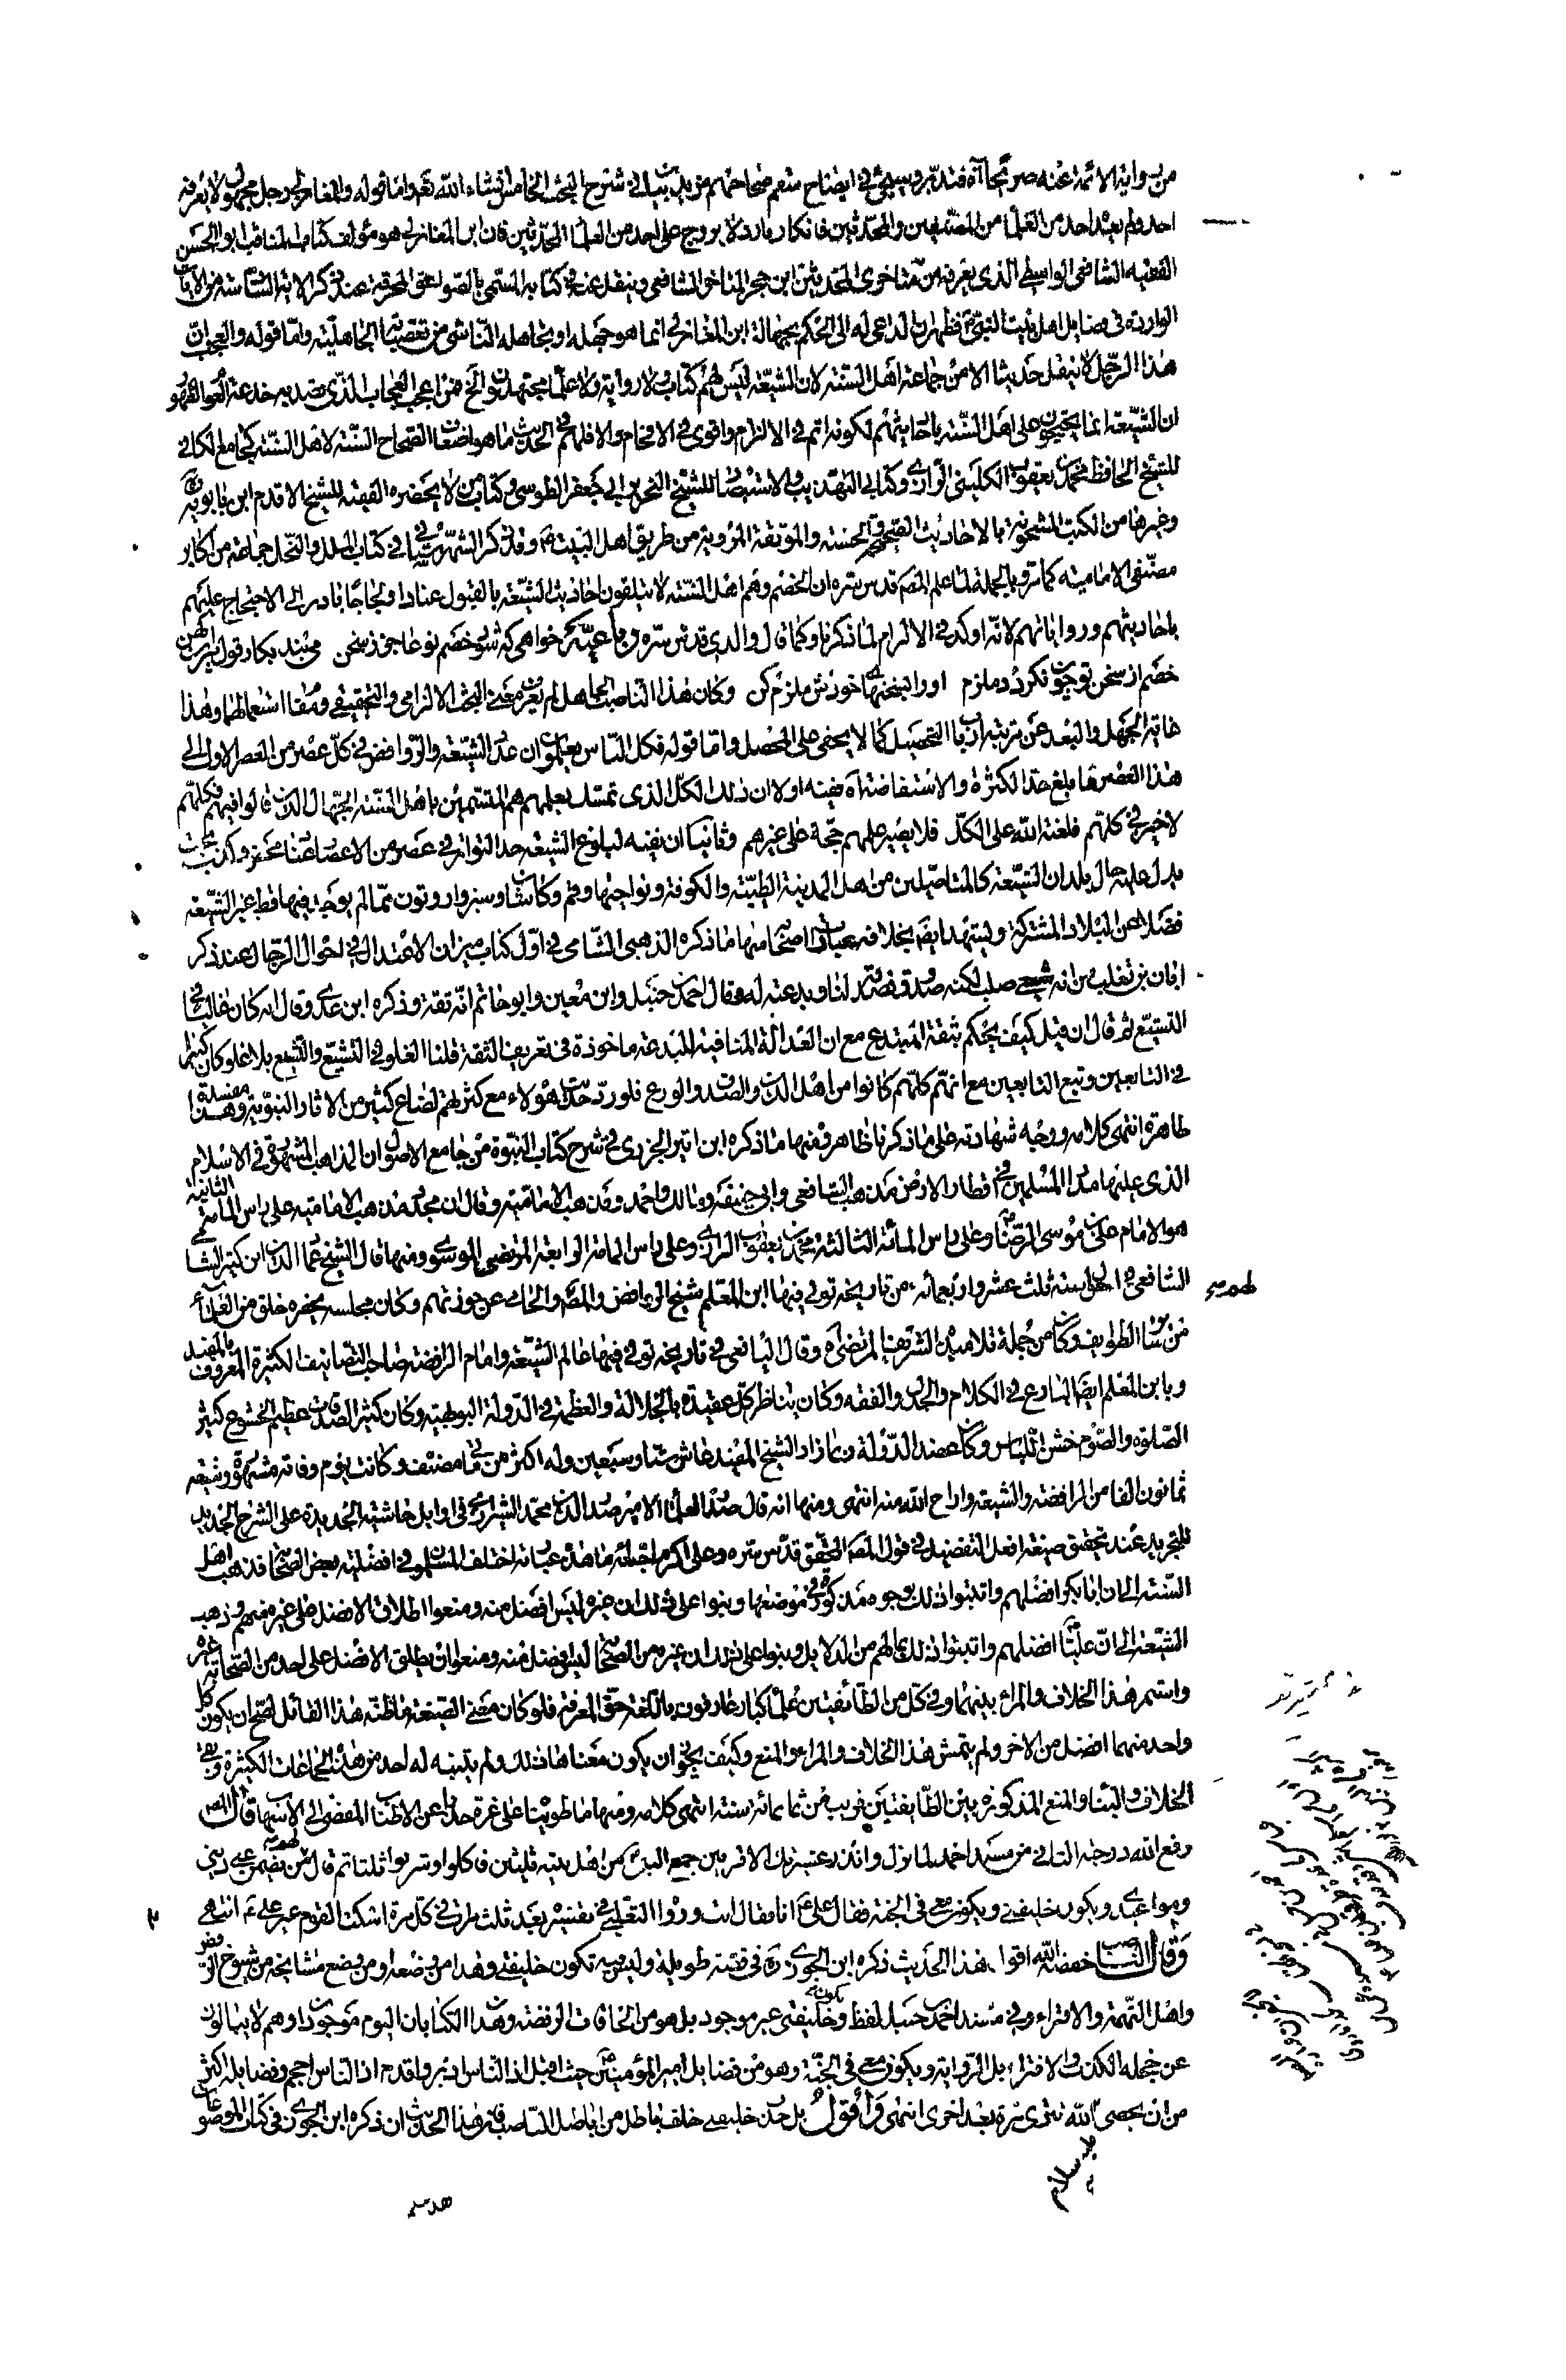 من رواية الائمة عنه صريحا آه فتدبر وسيجئ في ايضاح سقم صحاحهم مزيد بيان في شرح البحث الخامس انشاء الله تعالى واما قوله والمغازلي رجل مجهول لا يعرفه
احد ولم يعده احد من العلماء من المصنفين والمحدثين فانكار بارد لا يروج على احد من العلماء المحدثين فان ابن المغازلي هو مؤلف كتاب المناقب ابو الحسن
الفقيه الشافعي الواسطي الذي يعرفه من متاخري المحدثين ابن حجر المتاخر الشافعي وينقل عنه في كتابه المسمى بالصواعق المحرقة عند ذكر الاية السادسة من الايات
الواردة في فضايل اهل بيت النبي فظهر ان الداعي له الى الحكم بجهالة ابن المغازلي انما هو جهله او تجاهله الناشي من تعصب الجاهلية واما قوله والعجب ان
هذا الرجل لا ينقل حديثا الا من جماعة اهل السنة لان الشيعة ليس لهم كتاب ولا رواية ولا علماء مجتهدون الخ فمن اعجب العجاب الذي قصد به خدعة العوام لظهور
ان الشيعة انما يحتجون على اهل السنة باحاديثهم لكونه اتم في الالزام واقوى في الافحام والا فلهم في الحديث ما هو اضعاف الصحاح الستة لاهل السنة كجامع الكافي
للشيخ الحافظ محمد بن يعقوب الكليني الرازي وكتابي التهذيب والاستبصار للشيخ النحرير ابي جعفر الطوسي وكتاب من لا يحضره الفقيه للشيخ الاقدم ابن بابويه
وغيرها من الكتب المشحونة بالاحاديث الصحيحة والحسنة والموثقة المروية من طريق اهل البيت وقد ذكر الشهرستاني في كتاب الملل والنحل جماعة من اكابر
مصنفي الامامية كما مر وبالجملة لما علم المصنف قدس سره ان الخصم وهم اهل السنة لا يتلقون احاديث الشيعة بالقبول عنادا ولجاجا بادر الى الاحتجاج عليهم
باحاديثهم ورواياتهم لانه اوكد في الالزام لما ذكرنا وكما قال والدي قدس سره رباعية خواهي كه شود خصم تو عاجز ز سخن مي بند بكار قول پيران كهن
خصم از سخن تو چون نكردد ملزم او را بسخنهاي خودش ملزم كن وكان هذا الناصب الجاهل لم يعرف معنى البحث الالزامي والتحقيقي ومقام استعمالهما وهذا
غاية الجهل والبعد عن مرتبة ارباب التحصيل كما لا يخفى على المحصل واما قوله فكل الناس يعلمون ان عدد الشيعة والروافض في كل عصر من العصر الاول الى
هذا العصر ما بلغ حد الكثرة والاستفاضة آه ففيه اولا ان ذلك الكل الذي تمسك بعلمهم هم المتسمين باهل السنة الجهال الذين قالوا فيهم فكلهم
لا خير في كلهم فلعنة الله على الكل فلا يصير علمهم حجة على غيرهم وثانيا ان نفيه لبلوغ الشيعة حد التواتر في عصر من الاعصار عناد محض وكذب بحت
يدل عليه حال بلدان الشيعة كالمتاصلين من اهل المدينة الطيبة والكوفة ونواحيها وقم وكاشان وسبزوار وتون مما لم يوجد فيها قط غير الشيعة
فضلا عن البلاد المشتركة ويشهد ايضا بخلافه عبارات اصحابه منها ما ذكره الذهبي الشامي في اول كتاب ميزان الاعتدال في احوال الرجال عند ذكر
ابان بن تغلب من انه شيعي صلب لكنه صدوق فصدقه لنا وبدعته له وقال احمد بن حنبل وابن معين وابو حاتم انه ثقة وذكره ابن عدي وقال انه كان غاليا في
التشيع ثم قال ان قيل كيف يحكم بثقة المبتدع مع ان العدالة المنافية للبدعة ماخوذة في تعريف الثقة قلنا الغلو في التشيع والتشيع بلا غلو كان كثيرا
في التابعين وتبع التابعين مع انهم كلهم كانوا من اهل الدين والصدق والورع فلو رد حديث هؤلاء مع كثرتهم لضاع كثير من الاثار النبوية وهذا مفسدة
ظاهرة انتهى كلامه ووجه شهادته على ما ذكرنا ظاهر ومنها ما ذكره ابن اثير الجزري في شرح كتاب النبوة من جامع الاصول ان المذاهب المشهورة في الاسلام
الذي عليها مدار المسلمين في اقطار الارض مذهب الشافعي وابي حنيفة ومالك واحمد ومذهب الامامية وقال ان مجدد مذهب الامامية على راس المائة الثانية
هو الامام علي بن موسى الرضا وعلى راس المائة الثالثة محمد بن يعقوب الرازي وعلى راس المائة الرابعة المرتضى الموسوي ومنها قال الشيخ عماد الدين ابن كثير الشامي
الشافعي في احوال سنة ثلث عشر واربعمائة من تاريخه توفي فيها ابن المعلم شيخ الروافض والمصنف والحامي عن حوزتهم وكان مجلسه يحضره خلق من العلماء
من ساير الطوايف وكان من جملة تلاميذه الشريف المرتضى آه وقال اليافعي في تاريخه توفي فيها عالم الشيعة وامام الرافضة صاحب التصانيف الكثيرة المعروف بالمفيد
وبابن المعلم ايضا البارع في الكلام والجدل والفقه وكان يناظر كل عقيدة بالجلالة والعظمة في الدولة البويهية وكان كثير الصدقات عظيم الخشوع كثير
الصلوة والصوم خشن اللباس وكان عضد الدولة ربما زار الشيخ المفيد عاش ستا وسبعين وله اكثر من مائتي مصنف وكانت يوم وفاته مشهورة وشيعه
ثمانون الفا من الرافضة والشيعة واراح الله منه انتهى ومنها انه قال صدر العلماء الامير صدر الدين محمد الشيرازي في اوايل حاشيته الجديدة على الشرح الجديد
للتجريد عند تحقيق صيغة افعل التفضيل في قول المصنف المحقق قدس سره وعلى اكرم احبائه ما هذه عبارته اختلف المسلمون في افضلية بعض الصحابة فذهب اهل
السنة الى ان ابا بكر افضلهم واثبتوا ذلك بوجوه مذكورة في موضعها وبنوا على ذلك ان غيره ليس افضل منه ومنعوا اطلاق الافضل على غيره منهم وذهب
الشيعة الى ان عليا افضلهم واثبتوا ذلك بما لهم من الدلايل وبنوا على ذلك ان غيره من الصحابة ليس افضل منه ومنعوا ان يطلق الافضل على احد من الصحابة غيره
واستمر هذا الخلاف والمراء بينهما وفي كل من الطائفتين علماء كبار عارفون باللغة حق المعرفة فلو كان معنى الصيغة ما ظنه هذا القائل لصح ان يكون كل
واحد منهما افضل من الاخر ولم يتمش هذا الخلاف والمراء والمنع وكيف يجوز ان يكون معناها ذلك ولم يتنبه له احد من هذه الجماعات الكثيرة وبقي
الخلاف والبناء والمنع المذكورة بين الطايفتين قريب من ثمانمائة سنة انتهى كلامه ومنها ما طوينا على غرة حذرا عن الاطناب المفضي الى الاسهاب قال المصنف
رفع الله درجته الثاني من مسند احمد لما نزل وانذر عشيرتك الاقربين جمع النبي من اهل بيته ثلثين فاكلوا وشربوا ثلثا ثم قال لهم من يضمن عني ديني
ومواعيدي ويكون خليفتي ويكون معي في الجنة فقال علي انا فقال انت ورواه الثعلبي في تفسيره بعد ثلث مرات في كل مرة اسكت القوم غير علي انتهى
وقال الناصب خفضه الله اقول هذا الحديث ذكره ابن الجوزي في قصة طويلة وليس فيه تكون خليفتي وهذا من وضعه او من وضع مشايخه من شيوخ الرفض
واهل التهمة والافتراء وفي مسند احمد بن حنبل لفظ ويكون خليفتي غير موجود بل هو من الحاقات الرفضة وهذان الكتابان اليوم موجودان وهم لا يبالون
عن خجلة الكذب والافتراء بل الرواية ويكون معي في الجنة وهو من فضايل امير المؤمنين حيث اقبل اذ الناس ادبروا واقدم اذ الناس احجم وفضايله اكثر
من ان يحصى الله تترى مرة بعد اخرى انتهى واقول بل حديث خليفتي خلف باطل من اباطيل الناصب فان هذا الحديث ان ذكره ابن الجوزي في كتاب الموضوعات